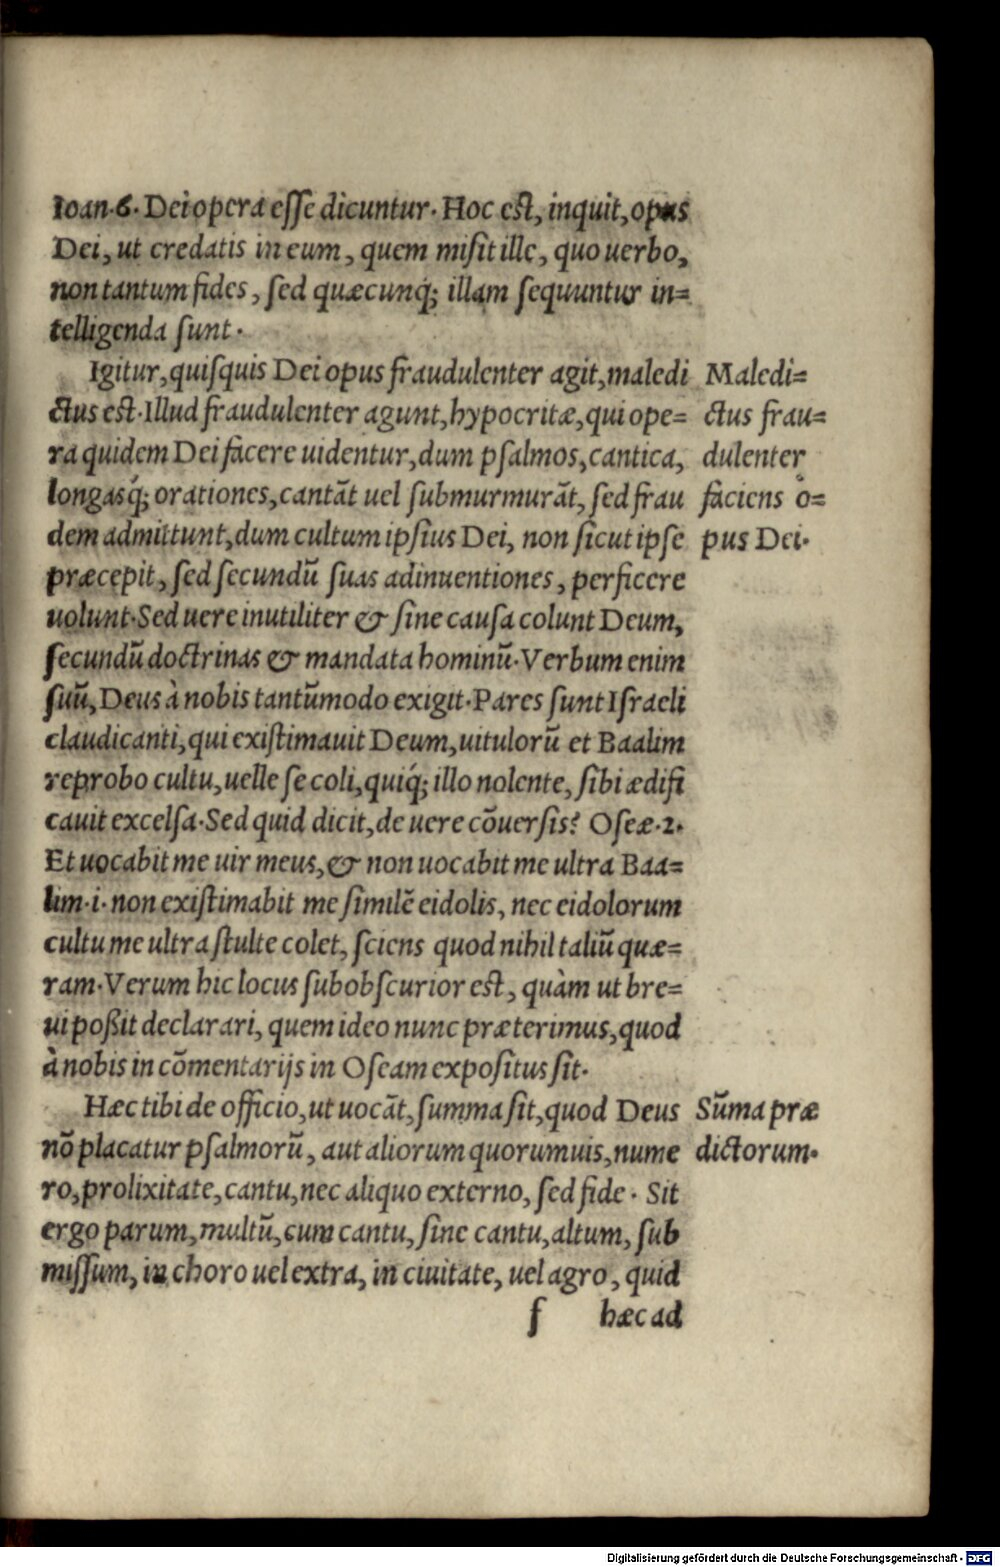 Ioan.6. Dei opera esse dicuntur. Hoc est, inquit, opus
Dei, ut credatis in eum, quem misit ille, quo uerbo,
non tantum fides, sed quæcunq́; illam sequuntur in=
telligenda sunt.
Igitur, quisquis Dei opus fraudulenter agit, maledi
ctus est. Illud fraudulenter agunt, hypocritæ, qui ope=
ra quidem Dei facere uidentur, dum psalmos, cantica,
longasq́; orationes, cantāt uel submurmurāt, sed frau
dem admittunt, dum cultum ipsius Dei, non sicut ipse
præcepit, sed secundū suas adinuentiones, perficere
uolunt. Sed uere inutiliter & sine causa colunt Deum,
secundū doctrinas & mandata hominū. Verbum enim
suū, Deus à nobis tantūmodo exigit. Pares sunt Israeli
claudicanti, qui existimauit Deum, uitulorū et Baalim
reprobo cultu, uelle se coli, quiq́; illo nolente, sibi ædifi
cauit excelsa. Sed quid dicit, de uere cōuersis? Oseæ.2.
Et uocabit me uir meus, & non uocabit me ultra Baa=
lim.i. non existimabit me similē eidolis, nec eidolorum
cultu me ultra stulte colet, sciens quod nihil taliū quæ=
ram. Verum hic locus subobscurior est, quàm ut bre=
ui poßit declarari, quem ideo nunc præterimus, quod
à nobis in cōmentarijs in Oseam expositus sit.
Hæc tibi de officio, ut uocāt, summa sit, quod Deus
nō placatur psalmorū, aut aliorum quorumuis, nume
ro, prolixitate, cantu, nec aliquo externo, sed fide. Sit
ergo parum, multū, cum cantu, sine cantu, altum, sub
missum, in choro uel extra, in ciuitate, uel agro, quid
f hæc ad
Maledi=
ctus frau=
dulenter
faciens o=
pus Dei.
Sūma præ
dictorum.
Digitalisierung gefördert durch die Deutsche Forschungsgemeinschaft - DFG